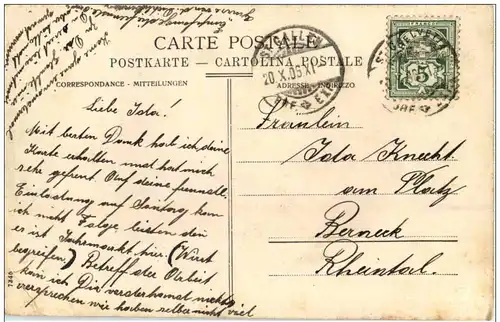 CARTE POSTALE
POSTKARTE - CARTOLINA POSTALE
CORRESPONDANCE - MITTEILUNGEN
ADRESSE - INDIRIZZO
ST. GALLEN
20.X.05.XI
BRF. EXP.
HELVETIA
5
Liebe Ida!
Mit besten Dank hab ich deine
Karte erhalten und hat mich
sehr gefreut. Auf deine freundl.
Einladung auf Sontag kan
ich nicht Folge leisten den
es ist Jahrmarkt hier. (Wirst
begreifen.) Betreff der Arbeit
kan ich Dir vorderhand nichts
versprechen wir haben selber nicht viel
Fräulein
Ida Knecht
am Platz
Berneck
Rheintal.
1246